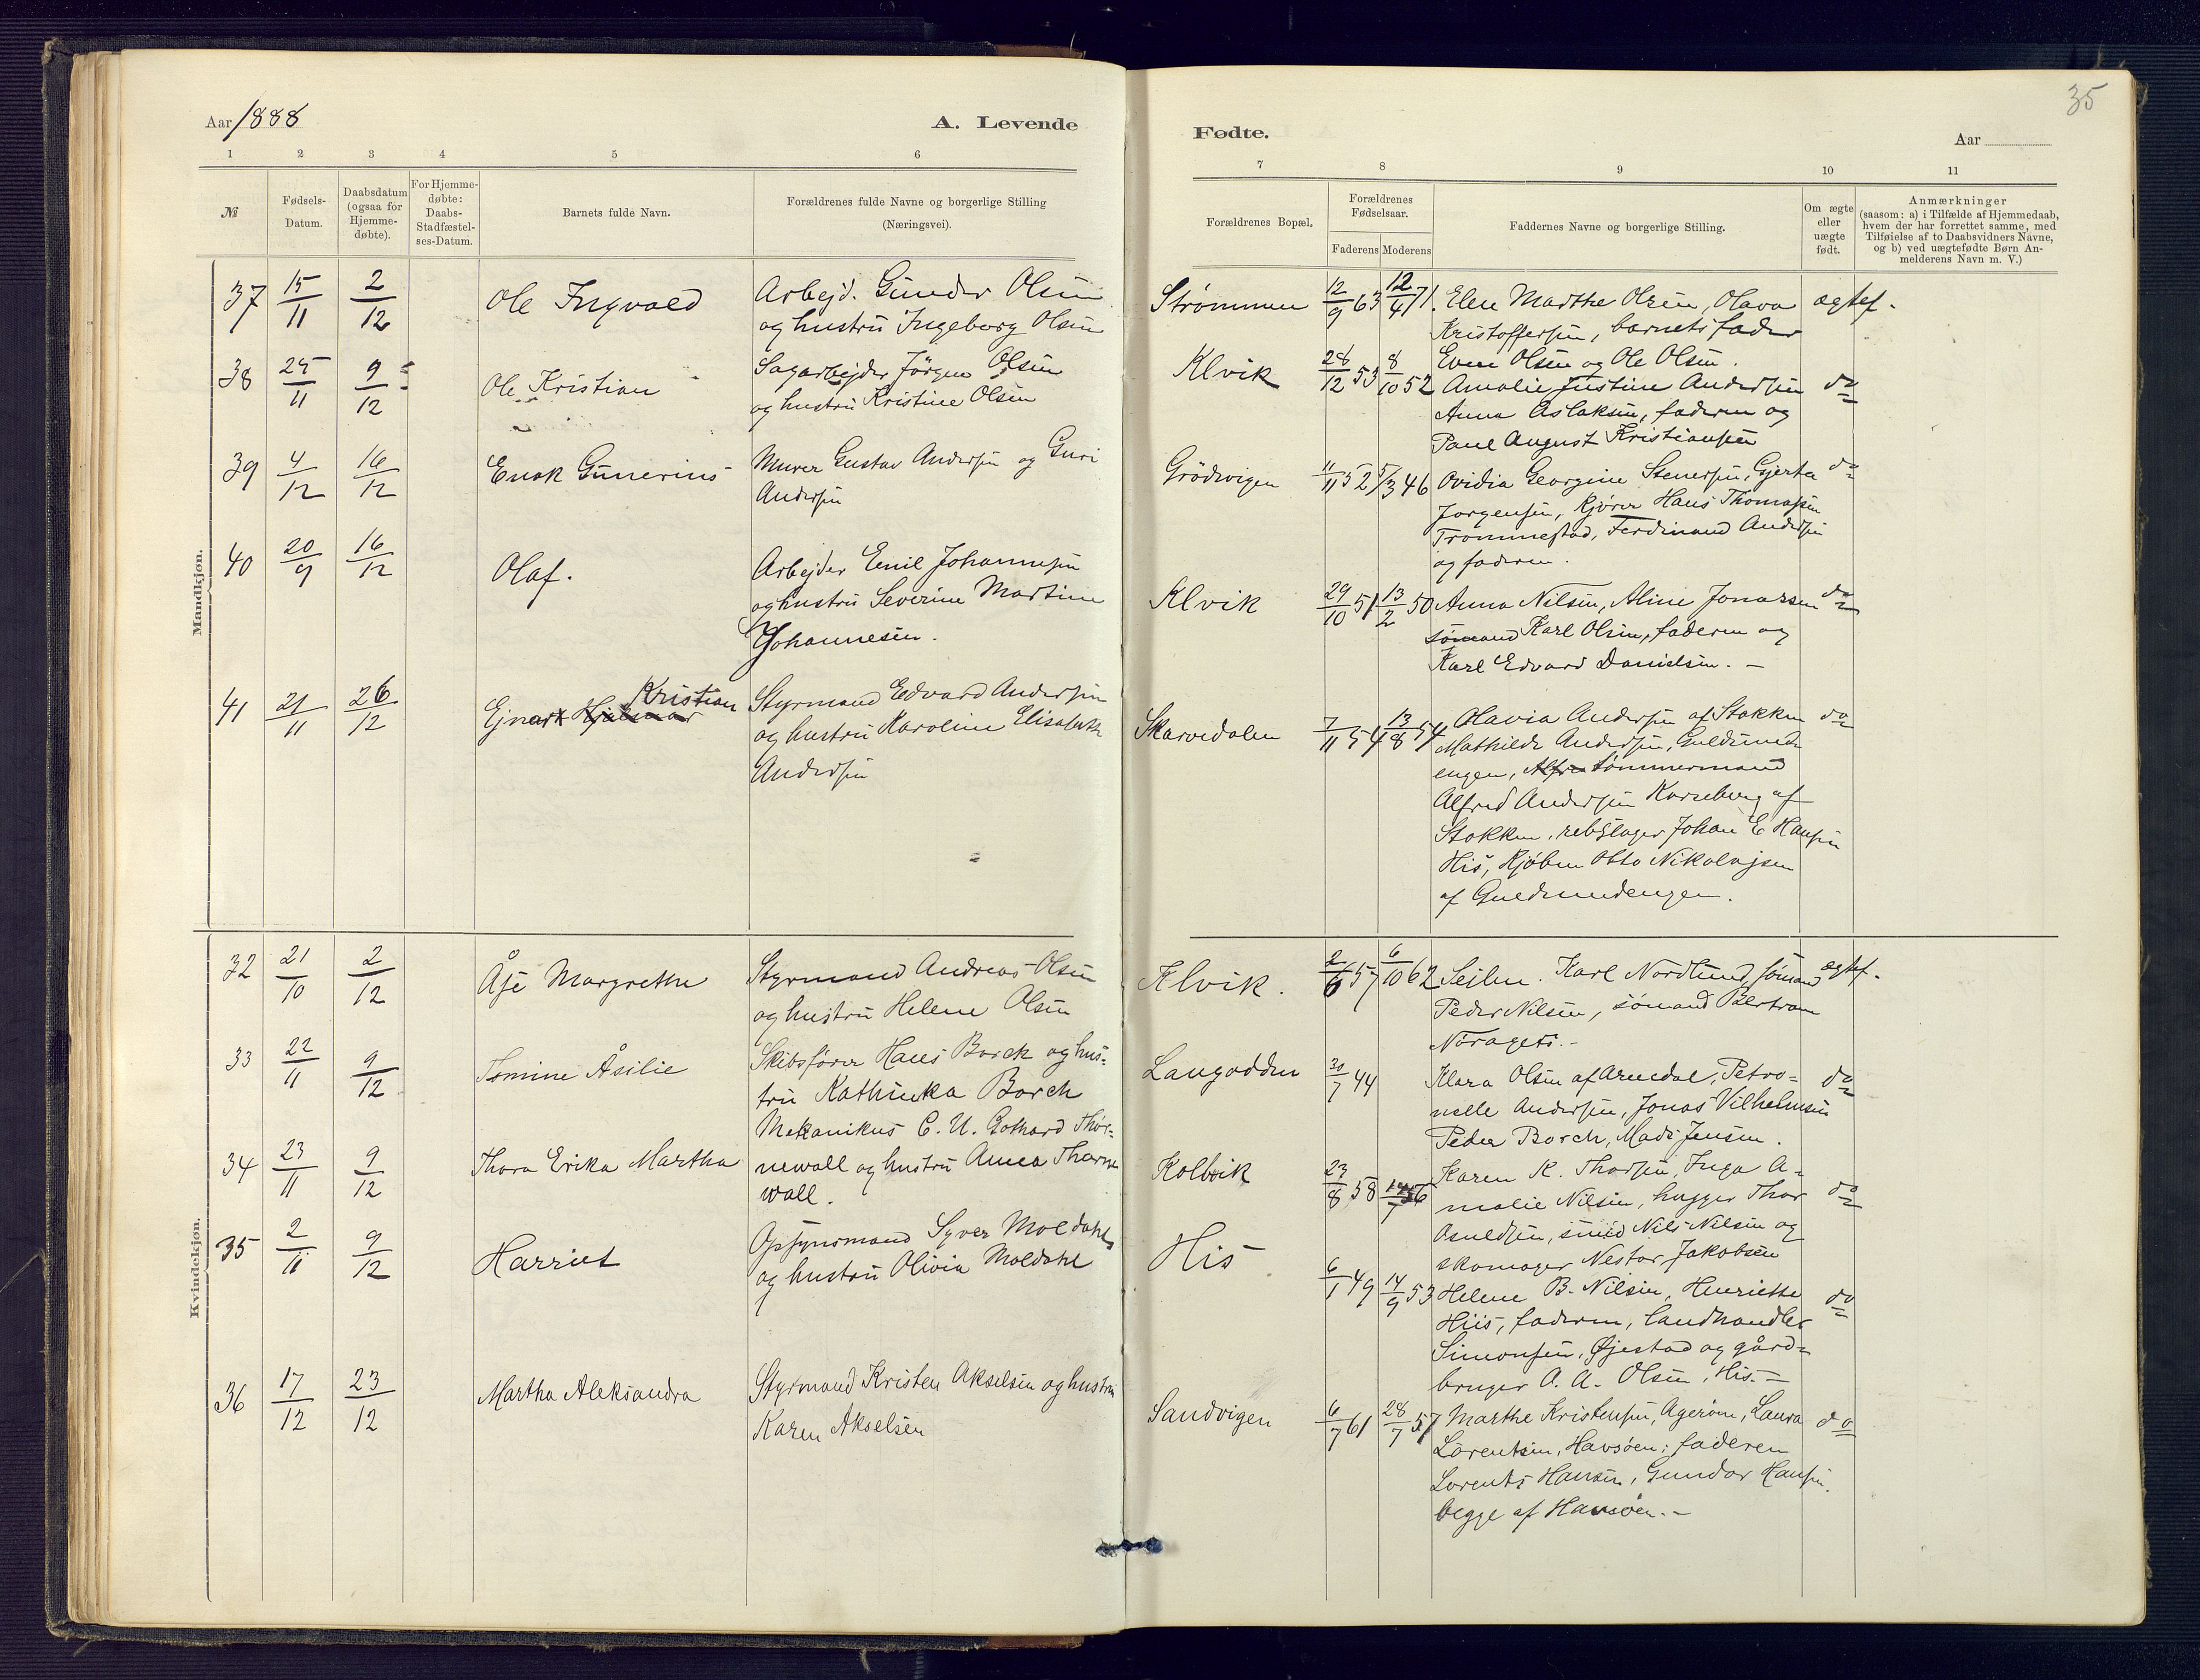 35
Aar 1888
A. Levende
Fødte.
Aar
1 2 3 4 5 6
7 8 9 10 11
№
Fødsels-
Datum.
Daabsdatum
(ogsaa for
Hjemme-
døbte).
For Hjemme-
døbte:
Daabs-
Stadfæstel-
ses-Datum.
Barnets fulde Navn.
Forældrenes fulde Navne og borgerlige Stilling
(Næringsvei).
Forældrenes Bopæl.
Forældrenes
Fødselsaar.
Faderens Moderens
Faddernes Navne og borgerlige Stilling.
Om ægte
eller
uægte
født.
Anmærkninger
(saasom: a) i Tilfælde af Hjemmedaab,
hvem der har forrettet samme, med
Tilføielse af to Daabsvidners Navne,
og b) ved uægtefødte Børn An-
melderens Navn m. V.)
Mandkjøn.
37 15/11 2/12 Ole Ingvald
Arbejd. Gunder Olsen
og hustru Ingeborg Olsen
Strømmen 12/9 63 12/4 71.
Elen Marthe Olsen, Olava
Kristoffersen, barnets fader
Even Olsen og Ole Olsen.
ægtef.
38 25/11 9/12 Ole Kristian
Sagarbejder Jörgen Olsen
og hustru Kristine Olsen
Klvik 28/12 53 8/10 52
Amalie Justine Andersen
Anna Aslaksen, faderen og
Paul August Kristiansen
do
39 4/12 16/12 Enok Gunerius
Murer Gustav Andersen og Guri
Andersen
Grödvigen 11/11 52 5/3 46
Ovidia Georgine Stenersen, Gjerta
Jorgensen, Kjörer Hans Thomassen
Trommestad, Ferdinand Andersen
og faderen.
do
40 20/9 16/12 Olaf.
Arbejder Emil Johannesen
og hustru Severine Martine
Johannesen.
Klvik 29/10 51 13/2 50
Anna Nilsen, Aline Jonassen
sömand Karl Olsen, faderen og
Karl Edvard Danielsen. -
do
41 21/11 26/12 Ejnar Hjalmar Kristian
Styrmand Edvard Andersen
og hustru Karoline Elisabeth
Andersen
Skarvedalen 7/11 54 13/8 54
Olavia Andersen af Stokken
Mathilde Andersen, Guldsmeds
engen, Alfre tömmermand
Alfred Andersen Korseberg af
Stokken, rebslager Johan E Hansen
His, Kjöbm Otto Nikolajsen
af Guldsmedengen.
do
Kvindekjøn.
32 21/10 2/12 Åse Margrethe
Styrmand Andreas Olsen
og hustru Helene Olsen
Klvik. 2/6 57 6/10 62
Sejlm. Karl Nordlund, sömand
Peder Nilsen, sömand Bertram
Noragets.-
ægtef.
33 22/11 9/12 Tomine Åsilie
Skibsförer Hans Borch og hus-
tru Kathinka Borch
Langodden 30/7 44
Klara Olsen af Arendal, Petro-
nelle Andersen, Jonas Vilhelmsen
Peder Borch, Mads Jensen.
do
34 23/11 9/12 Thora Erika Martha
Mekanikus C. U. Gothard Thör-
newall og hustru Anna Thorne
wall.
Kolbvik 23/8 58
Karen K. Thorsen, Inga A-
malie Nilsen, hugger Thor
Osuldsen, smid Nils Nilsen og
skomager Nestor Jakobsen
do
35 2/11 9/12 Harriet
Opsynsmand Syver Moldahl
og hustru Olivia Moldahl
His 6/1 49 14/9 53
Helene B. Nilsen, Henriette
Hiis, faderen, landhandler
Simonsen, Øjestad og gård-
bruger O. A. Olsen, His.-
do
36 17/12 23/12 Martha Aleksandra
Styrmand Kristen Akselsen og hustru
Karen Akselsen
Sandvigen 6/7 61 28/7 57
Marthe Kristensen, Ageröen, Laura
Lorentsen, Havsöen; faderen
Lorents Hansen, Gunder Hansen,
begge af Havsöen.-
do